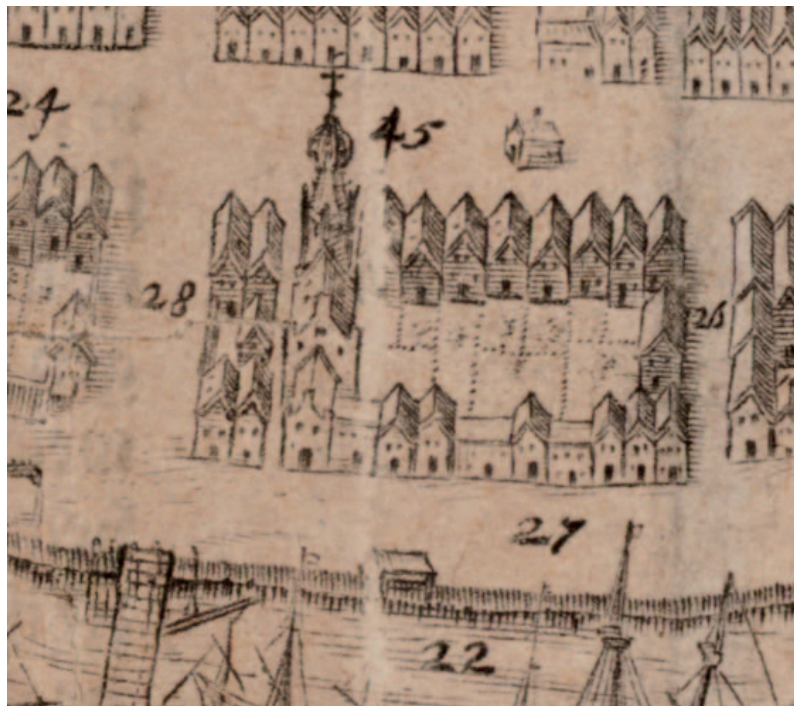 24
45
28
26
27
22